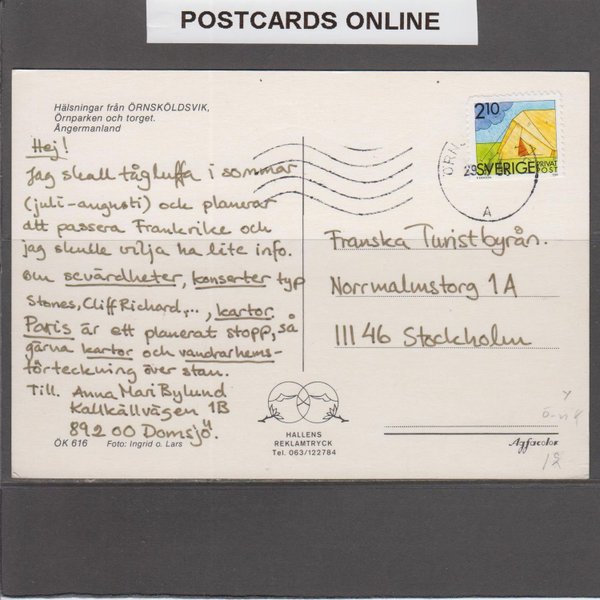 POSTCARDS ONLINE
Hälsningar från ÖRNSKÖLDSVIK,
Örnparken och torget.
Ångermanland
Hej!
Jag skall tågluffa i sommar
(juli-augusti) och planerar
att passera Frankrike och
jag skulle vilja ha lite info.
om sevärdheter, konserter typ
Stones, Cliff Richard,..., kartor.
Paris är ett planerat stopp, så
gärna kartor och vandrarhems-
förteckning över stan.
Till. Anna Mari Bylund
Kallkällvägen 1B
892 00 Domsjö.
ÖK 616 Foto: Ingrid o. Lars
HALLENS
REKLAMTRYCK
Tel. 063/122784
2.10
SVERIGE PRIVAT
POST
29
A
Franska Turistbyrån.
Norrmalmstorg 1A
111 46 Stockholm
Ö-vik
12
Agfacolor